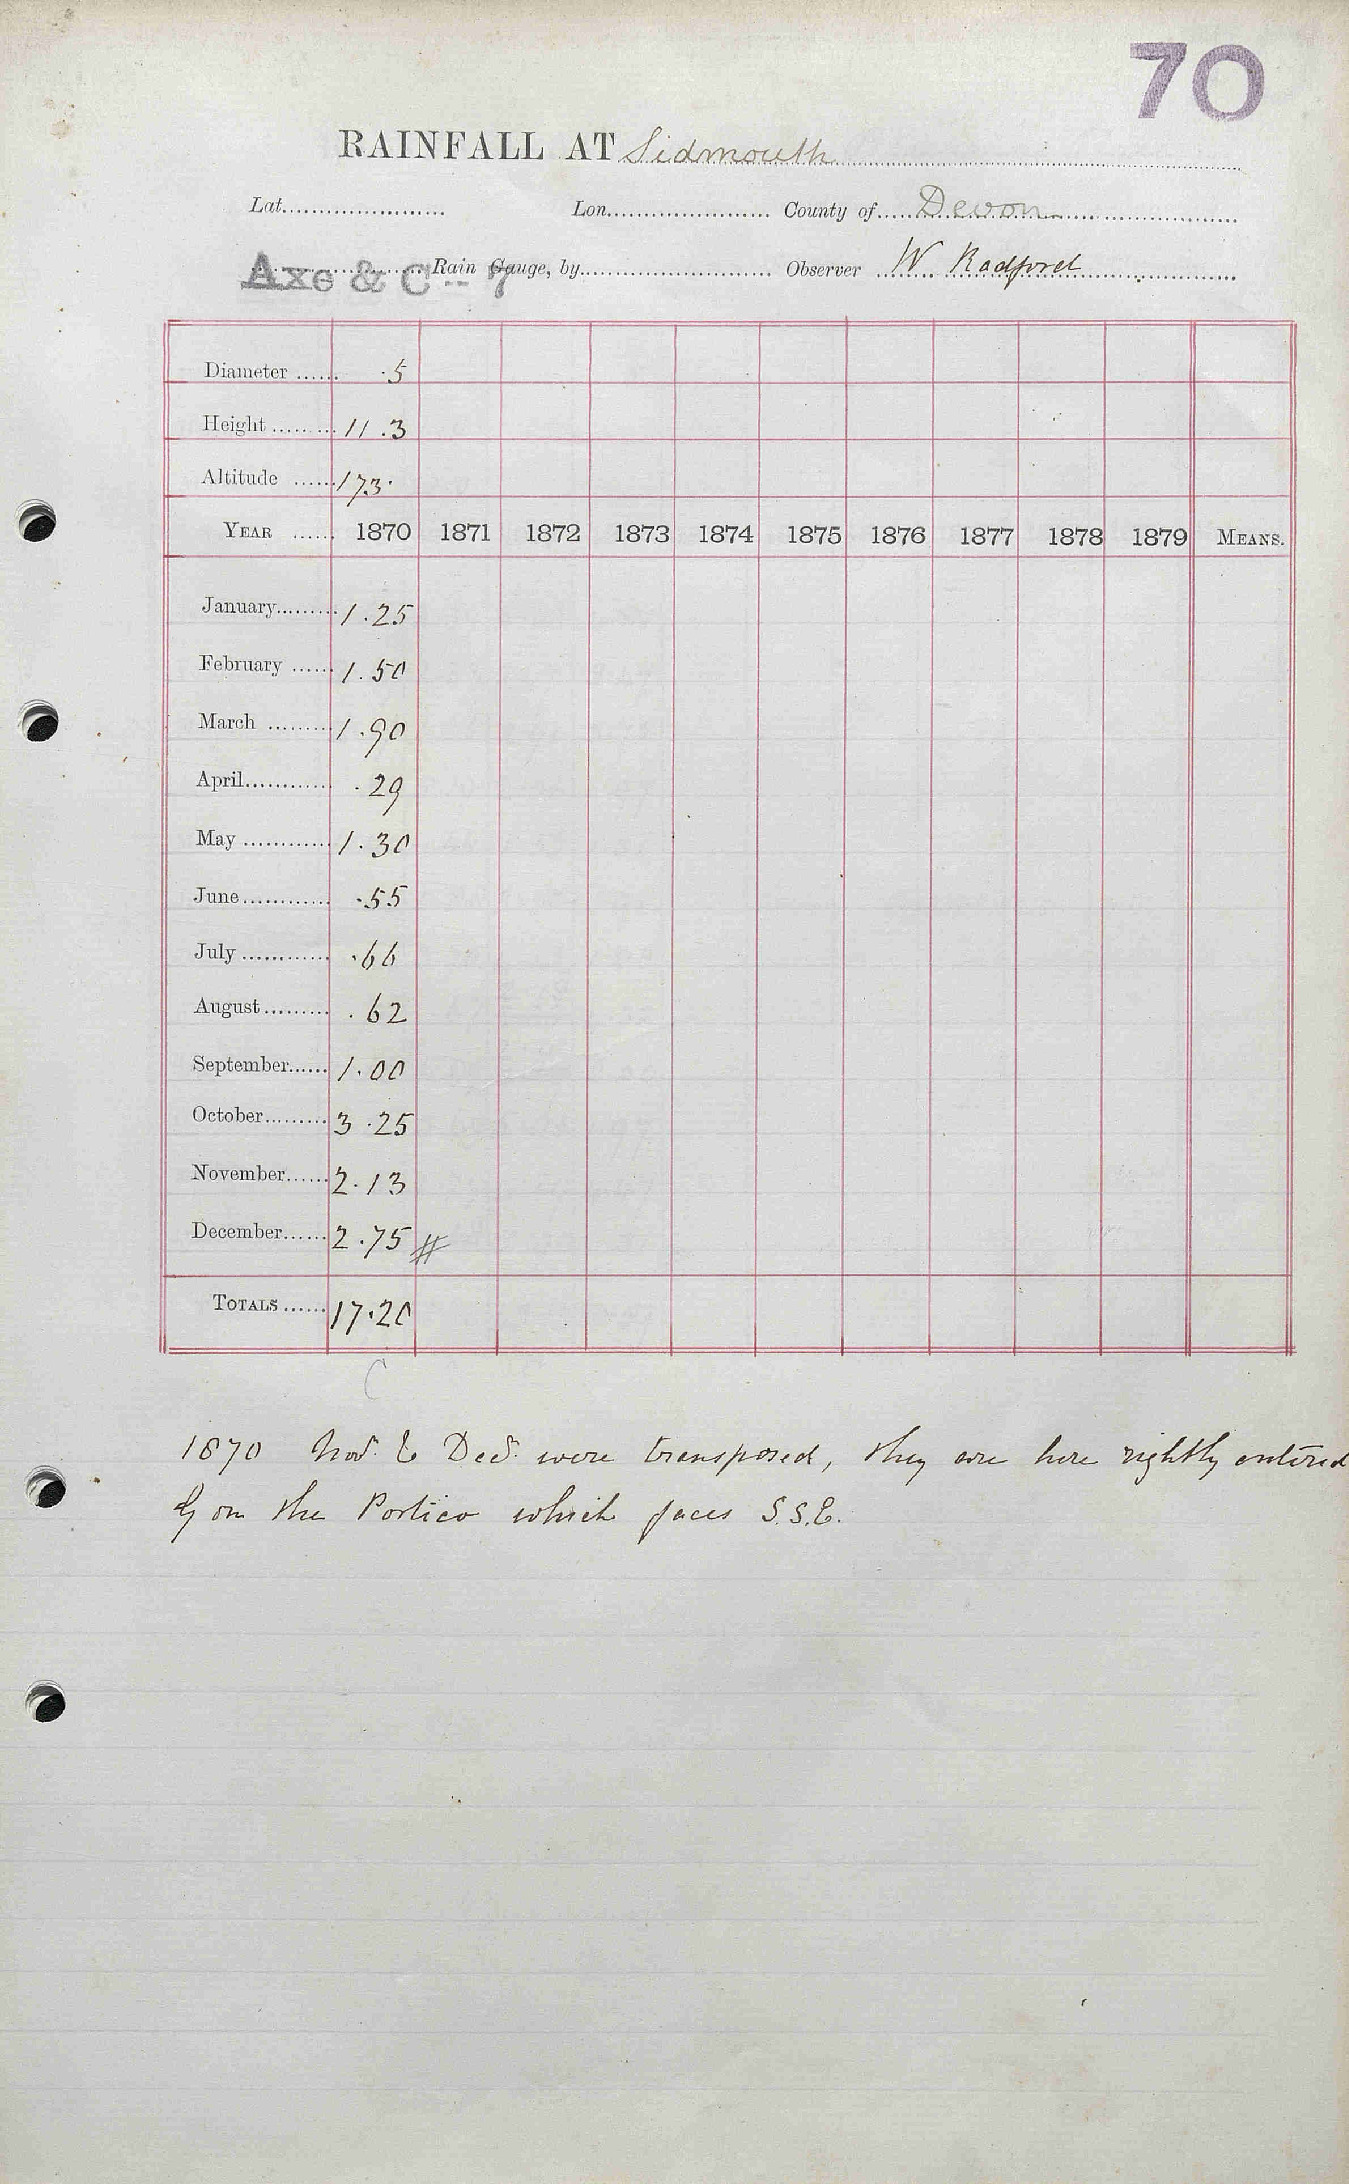 70
RAINFALL AT Sidmouth
Lat. Lon. County of Devon
Axe & C -- 7 Rain Gauge, by Observer W Radford
Diameter .5
Height 11.3
Altitude 173.
YEAR 1870 1871 1872 1873 1874 1875 1876 1877 1878 1879 MEANS.
January 1.25
February 1.50
March 1.90
April .29
May 1.30
June .55
July .66
August .62
September 1.00
October 3.25
November 2.13
December 2.75 #
TOTALS 17.20
C
1870 Nov. & Dec. were transposed, they are here rightly entered
on the Portico which faces S.S.E.